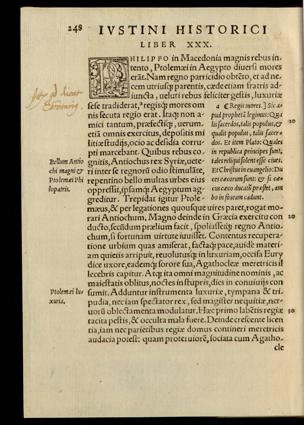 248
IVSTINI HISTORICI
LIBER XXX.
PHILIPPO in Macedonia magnis rebus in-
tento, Ptolemæi in Aegypto diuersi mores
erãt. Nam regno parricidio obtẽto, et ad ne-
cem utriusq; parentis, cæde etiam fratris ad-
iuncta, ueluti rebus feliciter gestis, luxuriæ
sese tradiderat, regisq; mores om-
nis secuta regio erat. Itaq; non a-
mici tantum, præfectiq;, uerum-
etiã omnis exercitus, depositis mi
litiæ studijs, ocio ac desidia corru-
pti marcebant. Quibus rebus co-
gnitis, Antiochus rex Syriæ, uete-
ri inter se regnorũ odio stimulãte,
repentino bello multas urbes eius
oppressit, ipsamq; Aegyptum ag-
greditur. Trepidat igitur Ptole-
mæus, & per legationes quousque uires paret, rogat mo-
rari Antiochum, Magno deinde in Græcia exercitu con-
ducto, secũdum prælium facit, spoliassetq; regno Antio-
chum, si fortunam uirtute iuuisset. Contentus recupera-
tione urbium quas amiserat, factaq; pace, auide materi-
am quietis arripuit, reuolutusq; in luxuriam, occisa Eury-
dice uxore, eademq; sorore sua, Agathocleæ meretricis il
lecebris capitur. Atq; ita omni magnitudine nominis, ac
maiestatis oblitus, noctes in stupris, dies in conuiuijs con-
sumit. Adduntur instrumenta luxuriæ, tympana & tri-
pudia, nec iam spectator rex, sed magister nequitiæ, ner-
uorũ oblectamenta modulatur. Hæc primo labẽtis regiæ
tacita pestis, & occulta mala fuere. Deinde crescente licen
tia, iam nec parietibus regiæ domus contineri meretricis
audacia potest: quam proteruiorẽ, sociata cum Aga
cle
a ¶ Regis mores.] Sic a-
pud
legimus: Qua
lis sacerdos, talis populus, &
qualis populus, talis sacer-
dos. Et item Plato: Quales
in republica principes sunt,
tales reliqui solent esse ciues.
Et Christus in euangelio:
cæci sunt: & si
cæcus cæco ducatũ præstet, am
bo in foueam cadunt.
Bellum Antio
chi magni &
Ptolemæi Phi
lopatris.
Ptolemæi lu-
xuria.
10
20
30